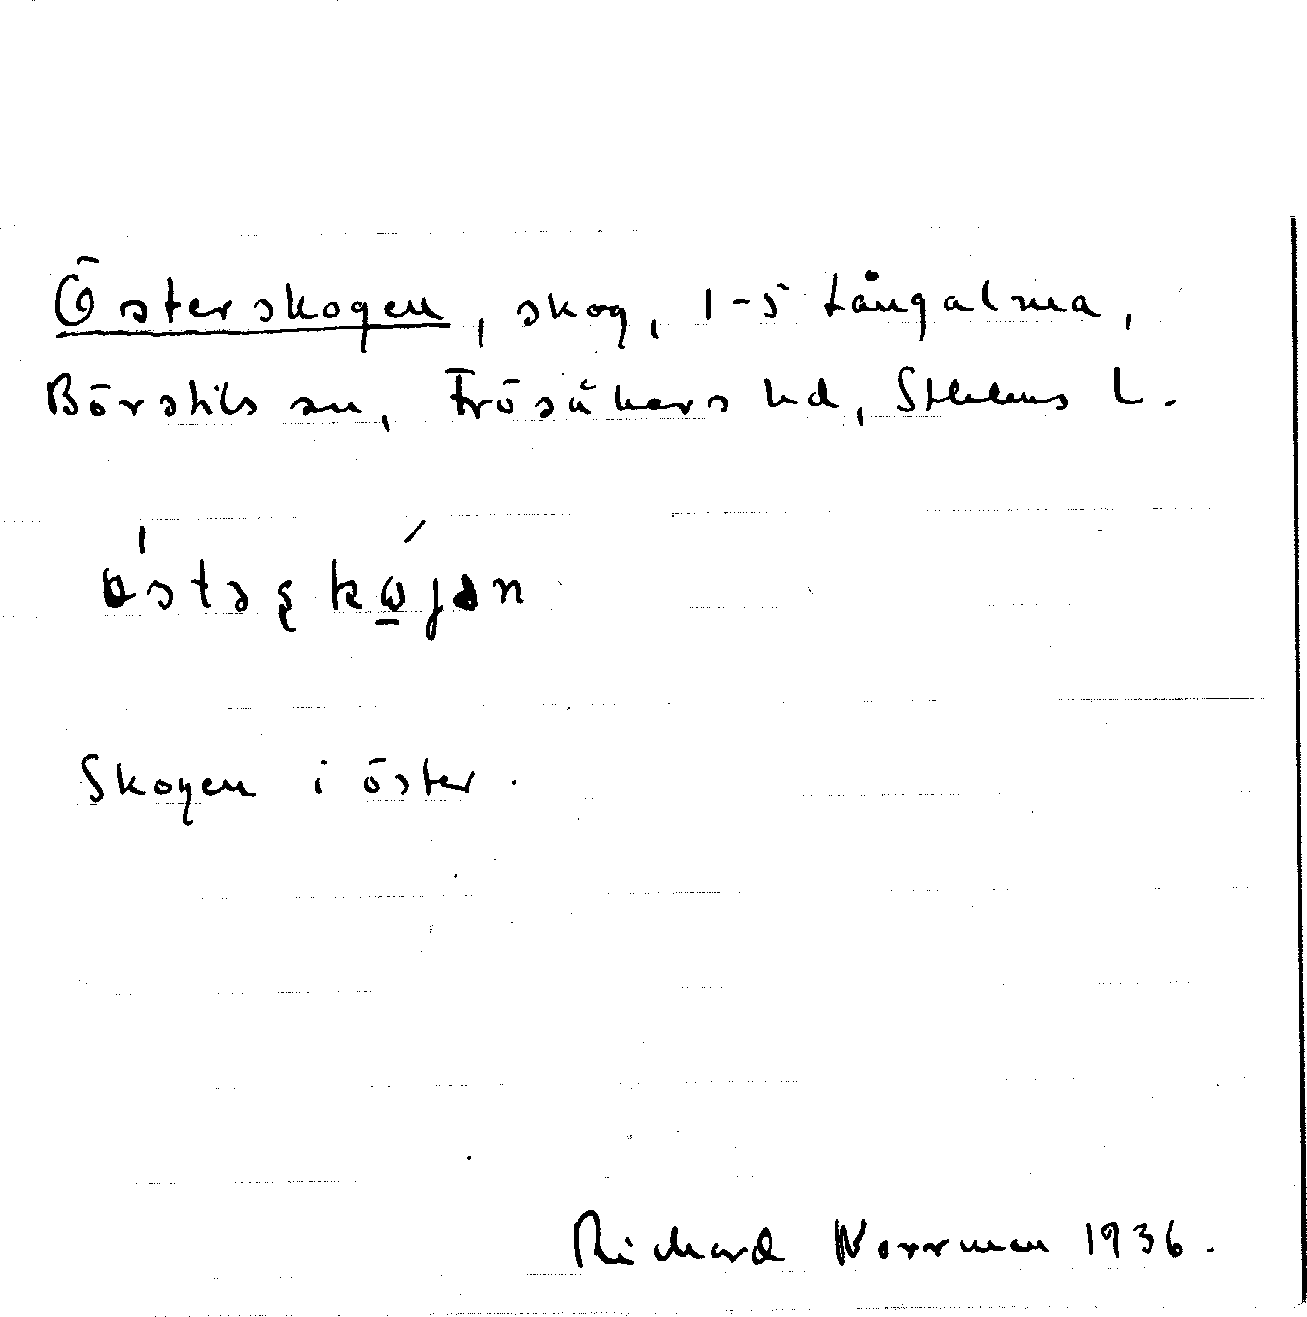 Österskogen, skog, 1-5 Långalma,
Börstils sn, Frösåkers hd, Sthlms l.
Skogen i öster.
Richard Norrman 1936.